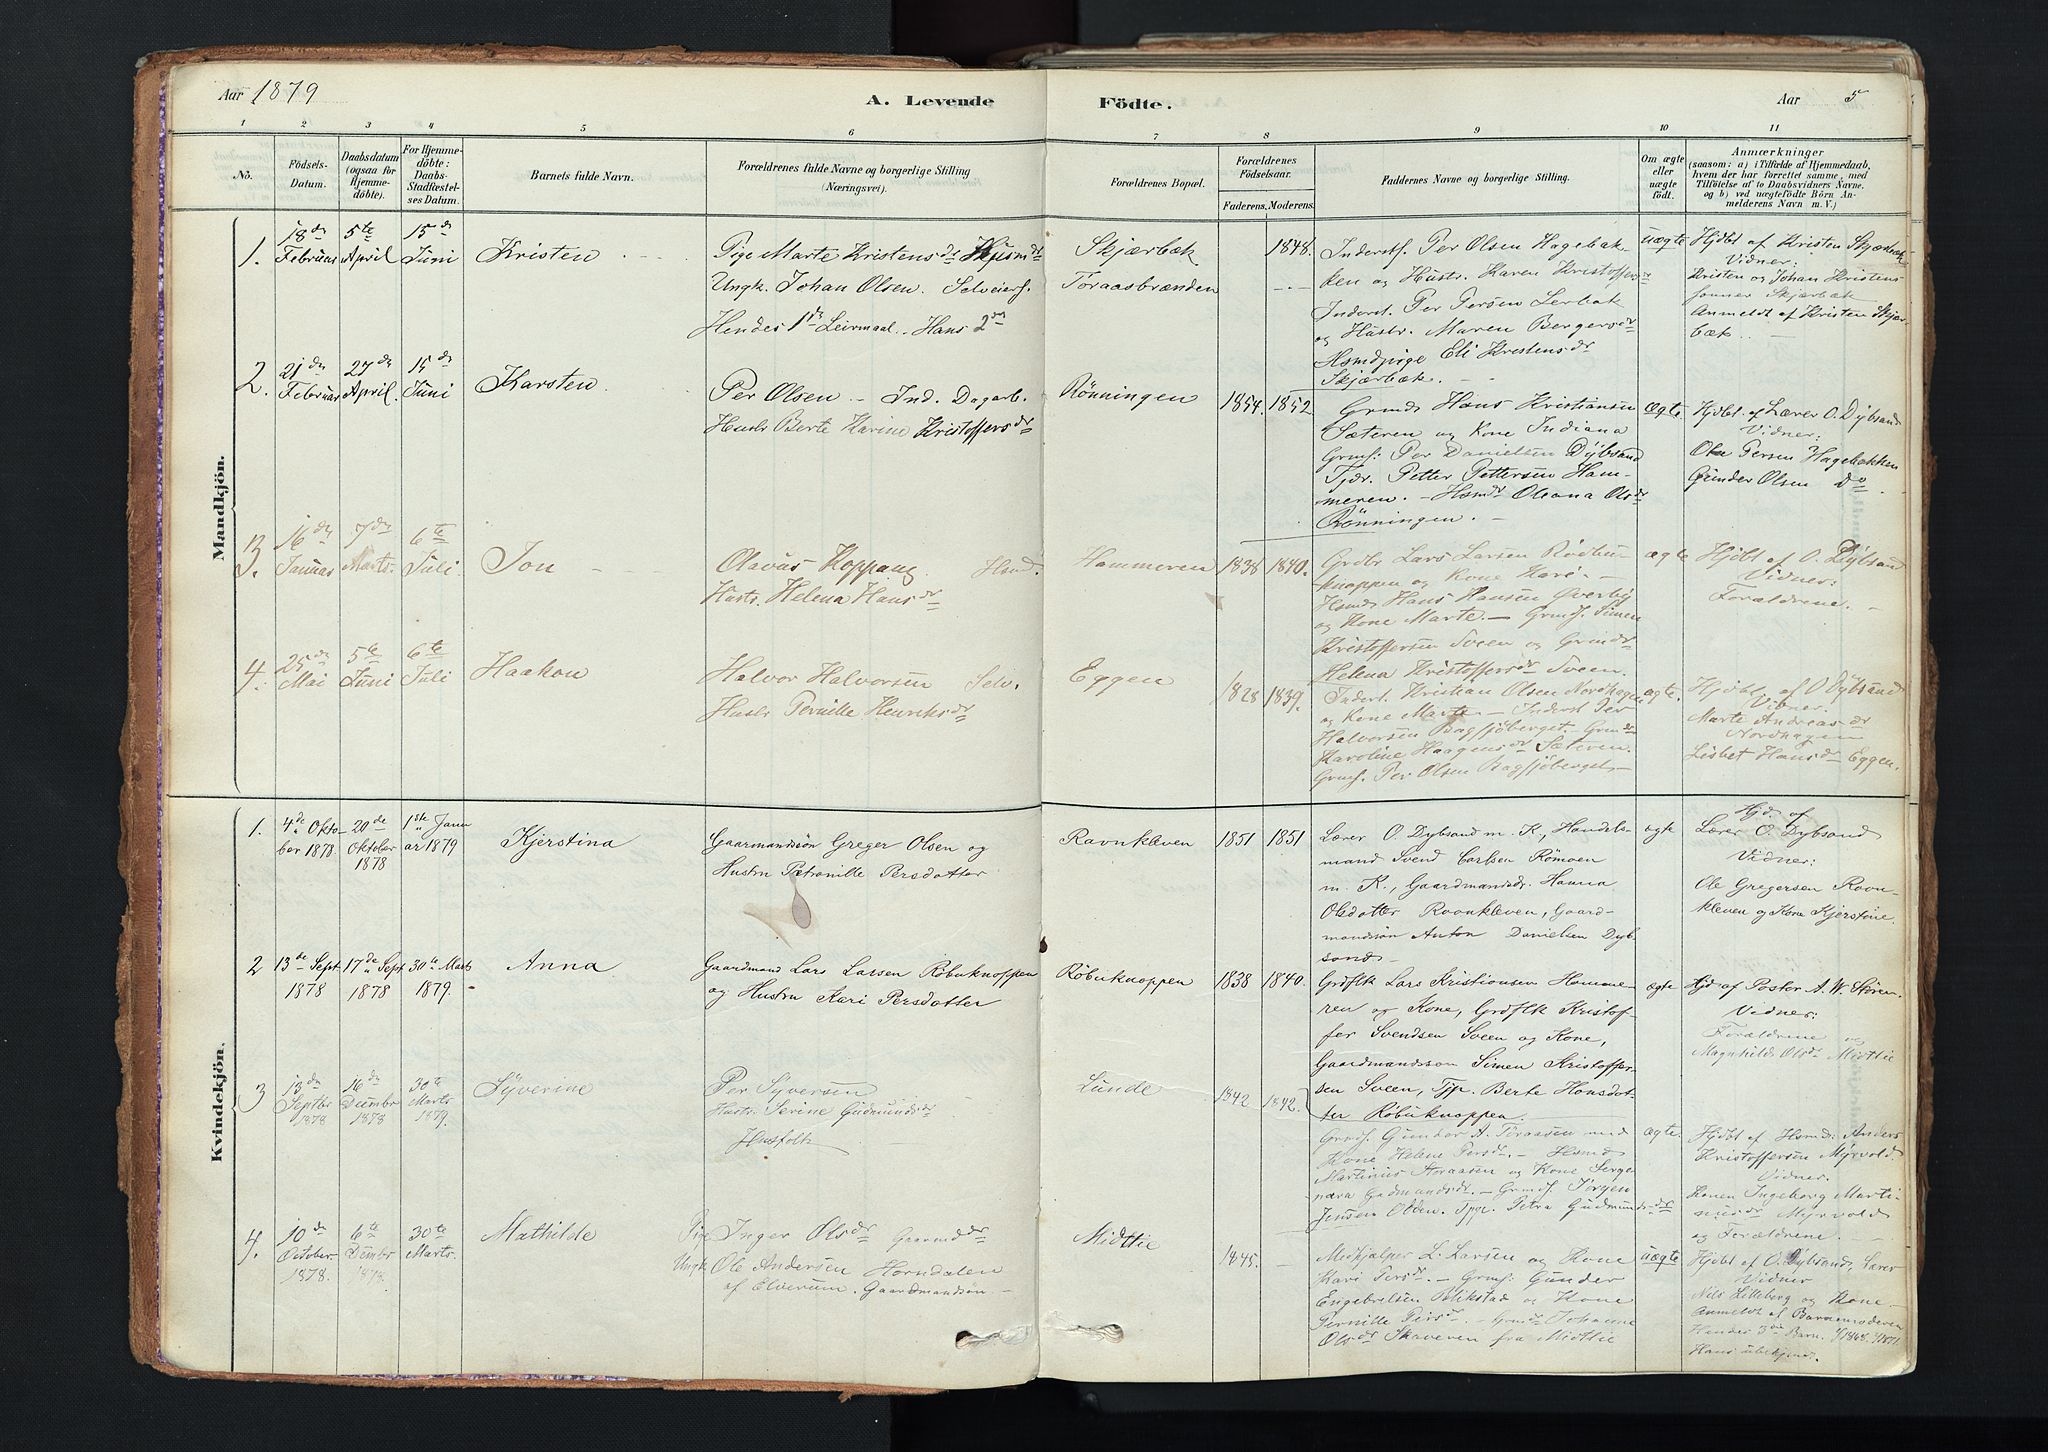 Aar 1879
A. Levende Födte.
Aar 5
1 2 3 4 5 6 7 8 9 10 11
No.
Födsels-
Datum.
Daabsdatum
(ogsaa for
Hjemme-
döbte).
For Hjemme-
döbte:
Daabs-
Stadfæstel-
ses Datum.
Barnets fulde Navn.
Forældrenes fulde Navne og borgerlige Stilling
(Næringsvei).
Forældrenes Bopæl.
Forældrenes
Födselsaar.
Faderens. Moderens.
Faddernes Navne og borgerlige Stilling.
Om ægte
eller
uægte
födt.
Anmærkninger
(saasom: a) i Tilfælde af Hjemmedaab,
hvem der har forrettet samme, med
Tilföielse af to Daabsvidners Navne,
og b) ved uægtefödte Börn An-
melderens Navn m. V.)
Mandkjön.
1.
18de
Februar
5te
April
15de
Juni
Kristen
Pige Marte Kristensdr
Ungk. Johan Olsen. Selveiers.
Hendes 1ste Leiermaal. Hans 2den
Skjærbæk
Toraasbrænden
1848.
Inderst. Per Olsen Hagebak-
ken og Hustr. Karen Kristoffersdr
Inderst. Per Persen Lerbak
og Hustr. Maren Bergersdr
Hsmdpige Eli Kristensdr
Skjærbæk.
uægte
Hjdbt af Kristen Skjærbæk
Vidner:
Kristen og Johan Kristens-
sønner Skjærbæk
Anmeldt af Kristen Skjær-
bæk.
2.
21de
Februar
27de
April.
15de
Juni
Karsten
Per Olsen – Ind. Dagarb.
Hustr Berte Karine Kristoffersdr
Rönningen
1854. 1852
Grmds Hans Kristiansen
Sæteren og Kone Indiana
Grms. Per Danielsen Dybsand
Tjdr. Petter Pettersen Ham-
meren. – Hsmdr Oleana Olsdr
Rönningen.
ægte
Hjdbt. af Lærer O. Dybsand
Vidner:
Ola Persen Hagebakken
Gunder Olsen Do
3.
16de
Januar
7de
Marts.
6te
Juli
Jon
Olavus Koppang. Hsmd.
Hustr. Helena Hansdr
Hammeren
1838 1840.
Grdbr Lars Larsen Rödbu-
knappen og Kone Kari. –
Hsmds Hans Hansen Överby
og Kone Marte. – Grms. Simen
Kristoffersen Sveen og Grmdr
Helena Kristoffersdr Sveen.
ægte
Hjdbt af O. Dybsand
Vidner:
Forældrene. –
4.
25de
Mai
5te
Juni
6te
Juli
Haakon
Halvor Halvorsen Selv.
Hustr Pernille Henriksdr
Eggen
1828 1839.
Inderst. Kristian Olsen Nordhagen
og Kone Marte – Inderst Per
Halvorsen Bagsjöberget. – Grmdr
Karoline Haagensdr Sæteren.
Grms. Per Olsen Bagsjöberget –
ægte.
Hjdbt af O. Dybsand
Vidner.
Marte Andreasdr
Nordhagen
Lisbet Hansdr Eggen.
Kvindekjön.
1.
4de Okto-
ber 1878.
20de
Oktober
1878
1ste Janu
ar 1879
Kjerstina
Gaarmandssön Greger Olsen og
Hustru Petronille Persdatter
Ravnkleven
1851 1851
Lærer O. Dybsand m. K., Handels-
mand Svend Carlsen Römoen
m. K., Gaardmandsdr. Hanna
Olsdatter Ravnkleven, Gaard-
mandssön Anton Danielsen Dyb-
sand.
ægte
Hjd. af
Lærer O. Dybsand
Vidner:
Ole Gregersen Ravn-
kleven og Kone Kjerstine.
2
13de Sept
1878
17de Sept
1878
30te Marts
1879.
Anna
Gaardmand Lars Larsen Röbuknoppen
og Hustru Kari Persdatter
Röbuknoppen
1838 1840.
Grdflk Lars Kristiansen Hamme-
ren og Kone, Grdflk Kristof-
fer Svendsen Sveen og Kone,
Gaardmandssön Simen Kristoffer-
sen Sveen, Tjp. Berte Hansdat-
ter Röbuknoppen.
ægte
Hjd af Pastor A. W. Stören.
Vidner:
Forældrene og
Magnhilde Olsdr Midttie
3
13de
Septbr
1878
16de
Decmbr
1878
30te
Marts
1879.
Syverine
Per Syversen
Hustr. Serine Gudmundsdr
Husfolk
Lunde
1842 1842.
Grms. Gunder A. Toraasen med
Kone Helene Persdr. – Hsmd
Martinius Storaasen og Kone Serge-
nara Gudmundsdr. – Grmds. Jörgen
Jensen Olden. Tpge. Petra Gudmundsdr
ægte.
Hjdbt af Hsmd: Anders
Kristoffersen Myrvold.
Vidner.
Konen Ingeborg Marti-
nusdr Myrvold
og Forældrene.
4.
10de
October
1878.
6te
Decmbr
1878.
30te
Marts.
Mathilde
Pige Inger Olsdr Gaarmddr
Ungk Ole Andersen Horndalen
af Elverum. Gaardmandsön –
Midttie
1845.
Medhjælper L. Larsen og Kone
Kari Persdr. – Grms: Gunder
Engebretsen Blikstad og Kone
Pernille Persdr. – Grmdr Johanne
Olsdr Skræveren fra Midttie
uægte
Hjdbt af O. Dybsand, Lærer
Vidner
Nils Lilleberg og Kone –
Anmeldt af Barnemoderen
Hendes 3die Barn.
Hans ubekjendt.